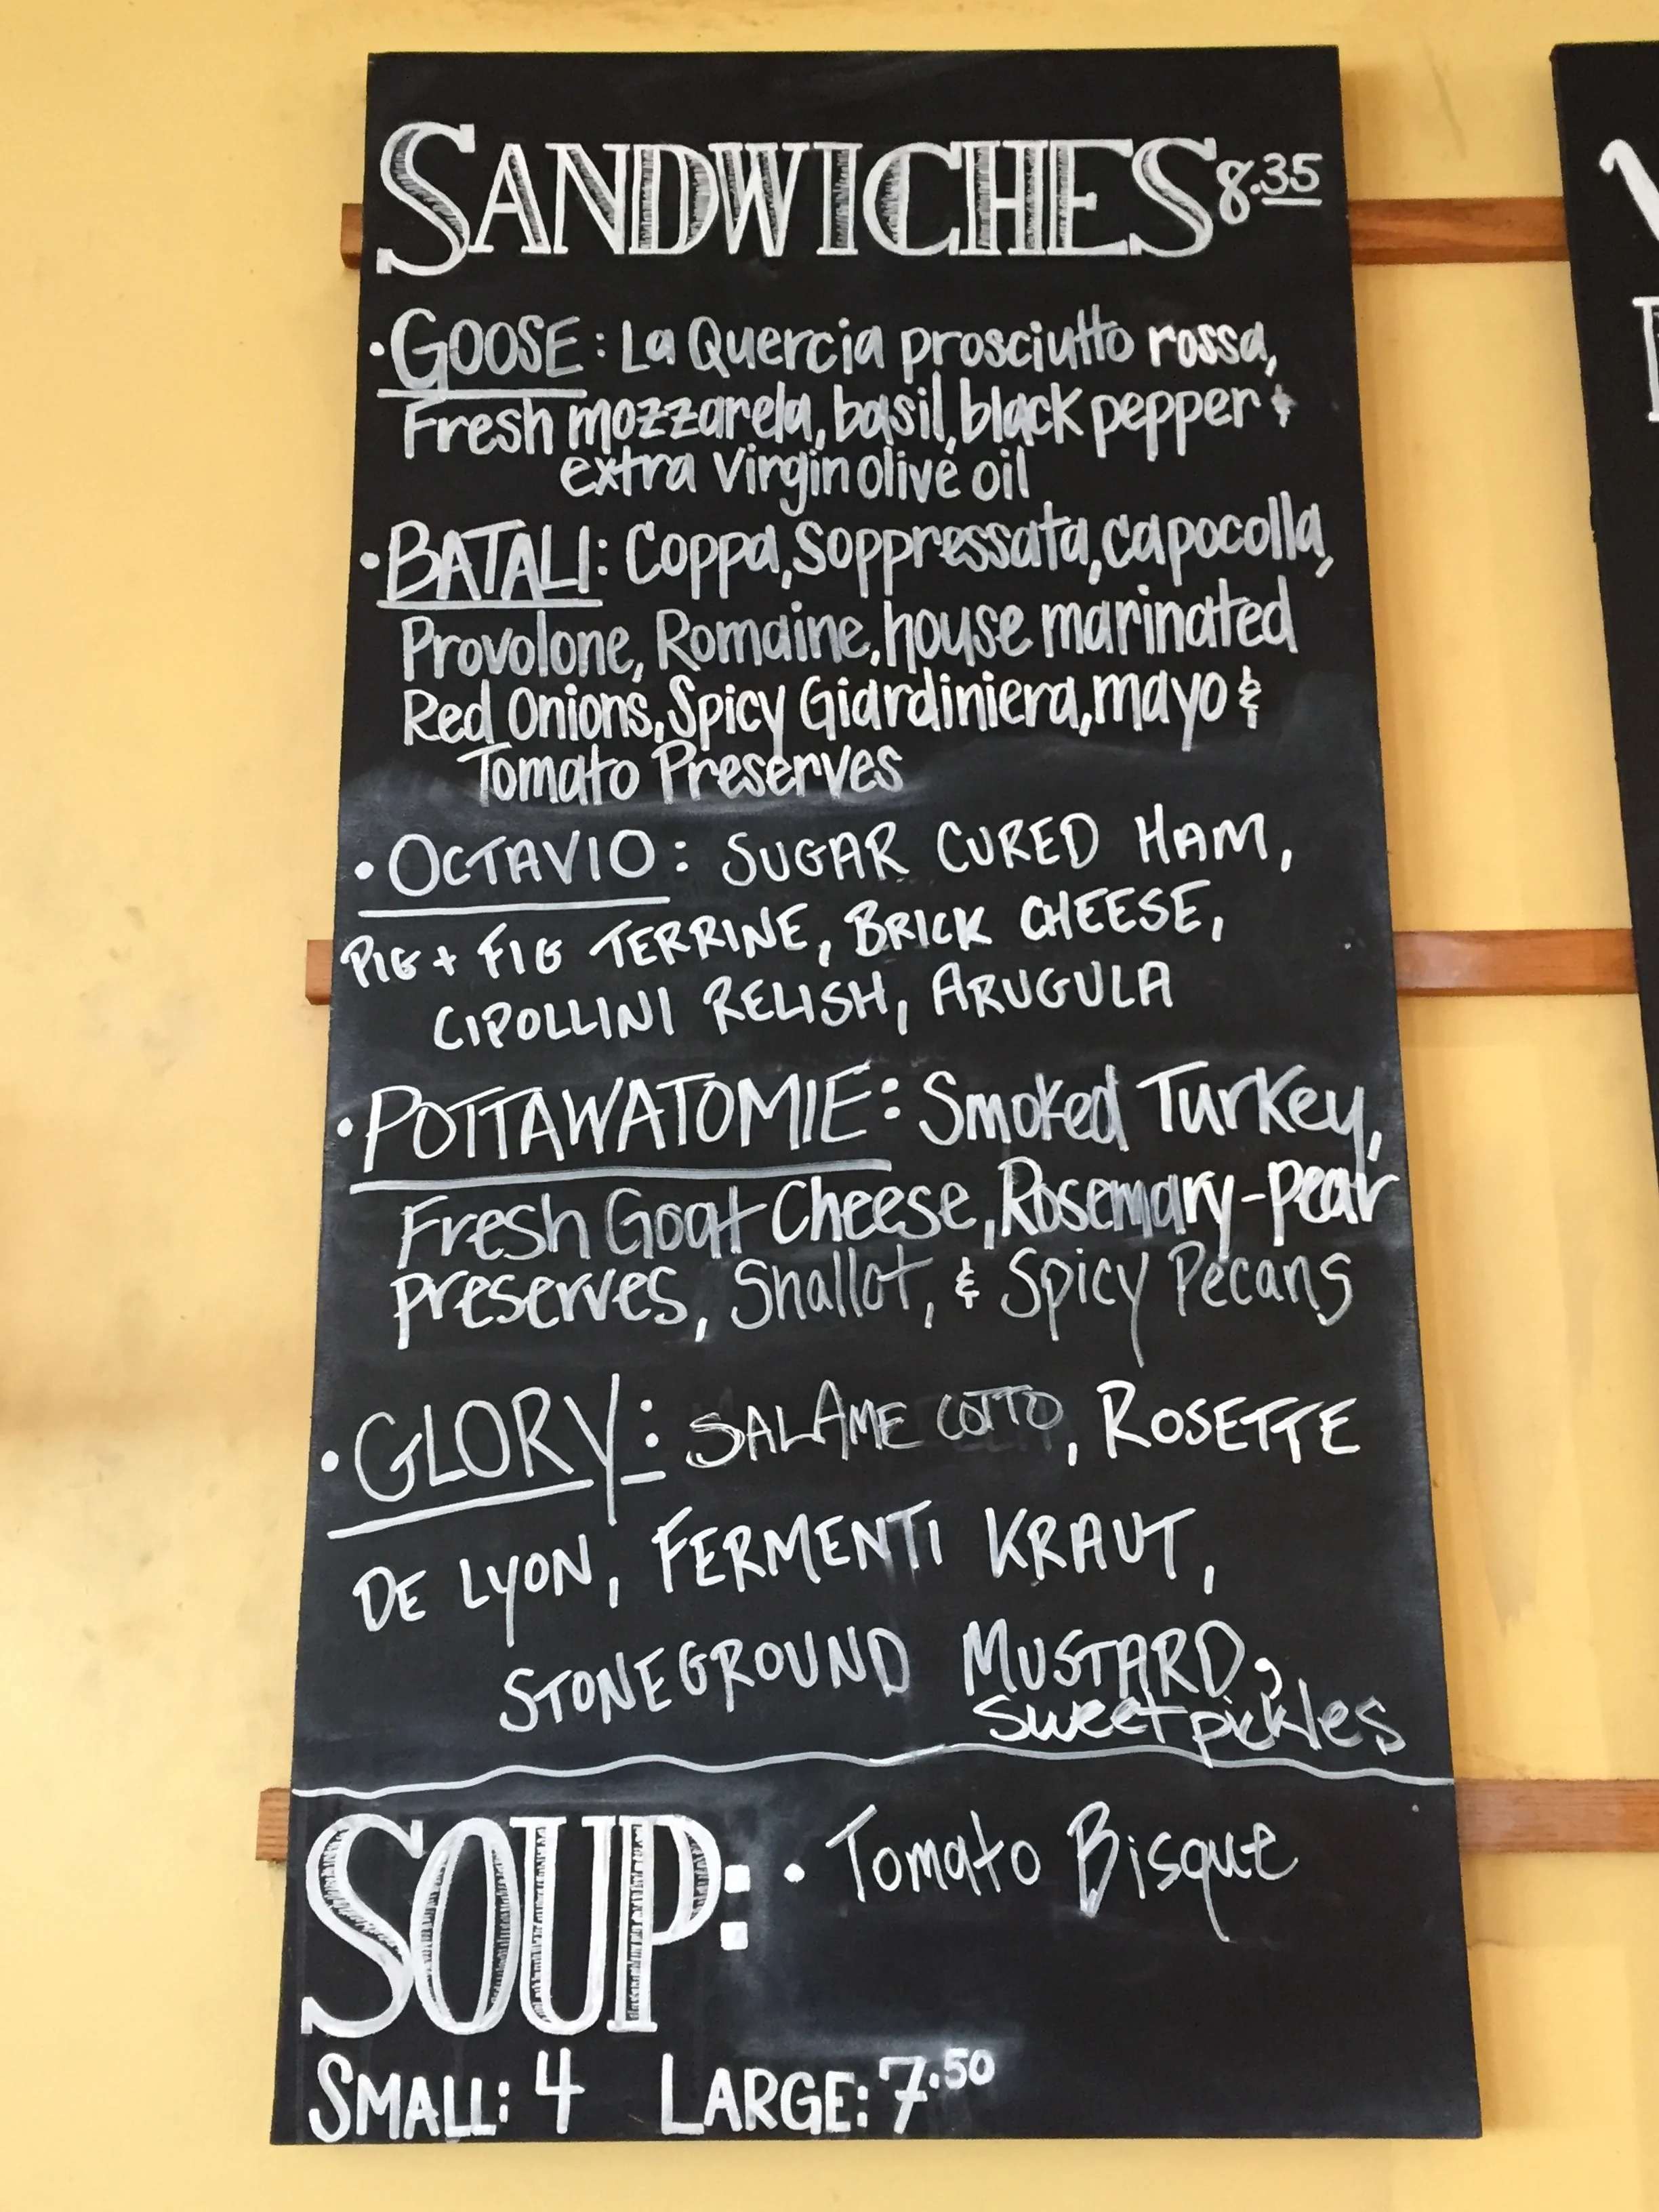 SANDWICHES 8.35
• GOOSE: La Quercia prosciutto rossa,
Fresh mozzarela, basil, black pepper &
extra virgin olive oil
• BATALI: Coppa, Soppressata, capocolla,
Provolone, Romaine, house marinated
Red Onions, Spicy Giardiniera, mayo &
Tomato Preserves
• OCTAVIO: SUGAR CURED HAM,
PIG + FIG TERRINE, BRICK CHEESE,
CIPOLLINI RELISH, ARUGULA
• POTTAWATOMIE: Smoked Turkey,
Fresh Goat Cheese, Rosemary-pear
preserves, Shallot, & Spicy Pecans
• GLORY: SALAME COTTO, ROSETTE
DE LYON, FERMENTI KRAUT,
STONEGROUND MUSTARD,
sweet pickles
SOUP: • Tomato Bisque
SMALL: 4 LARGE: 7.50